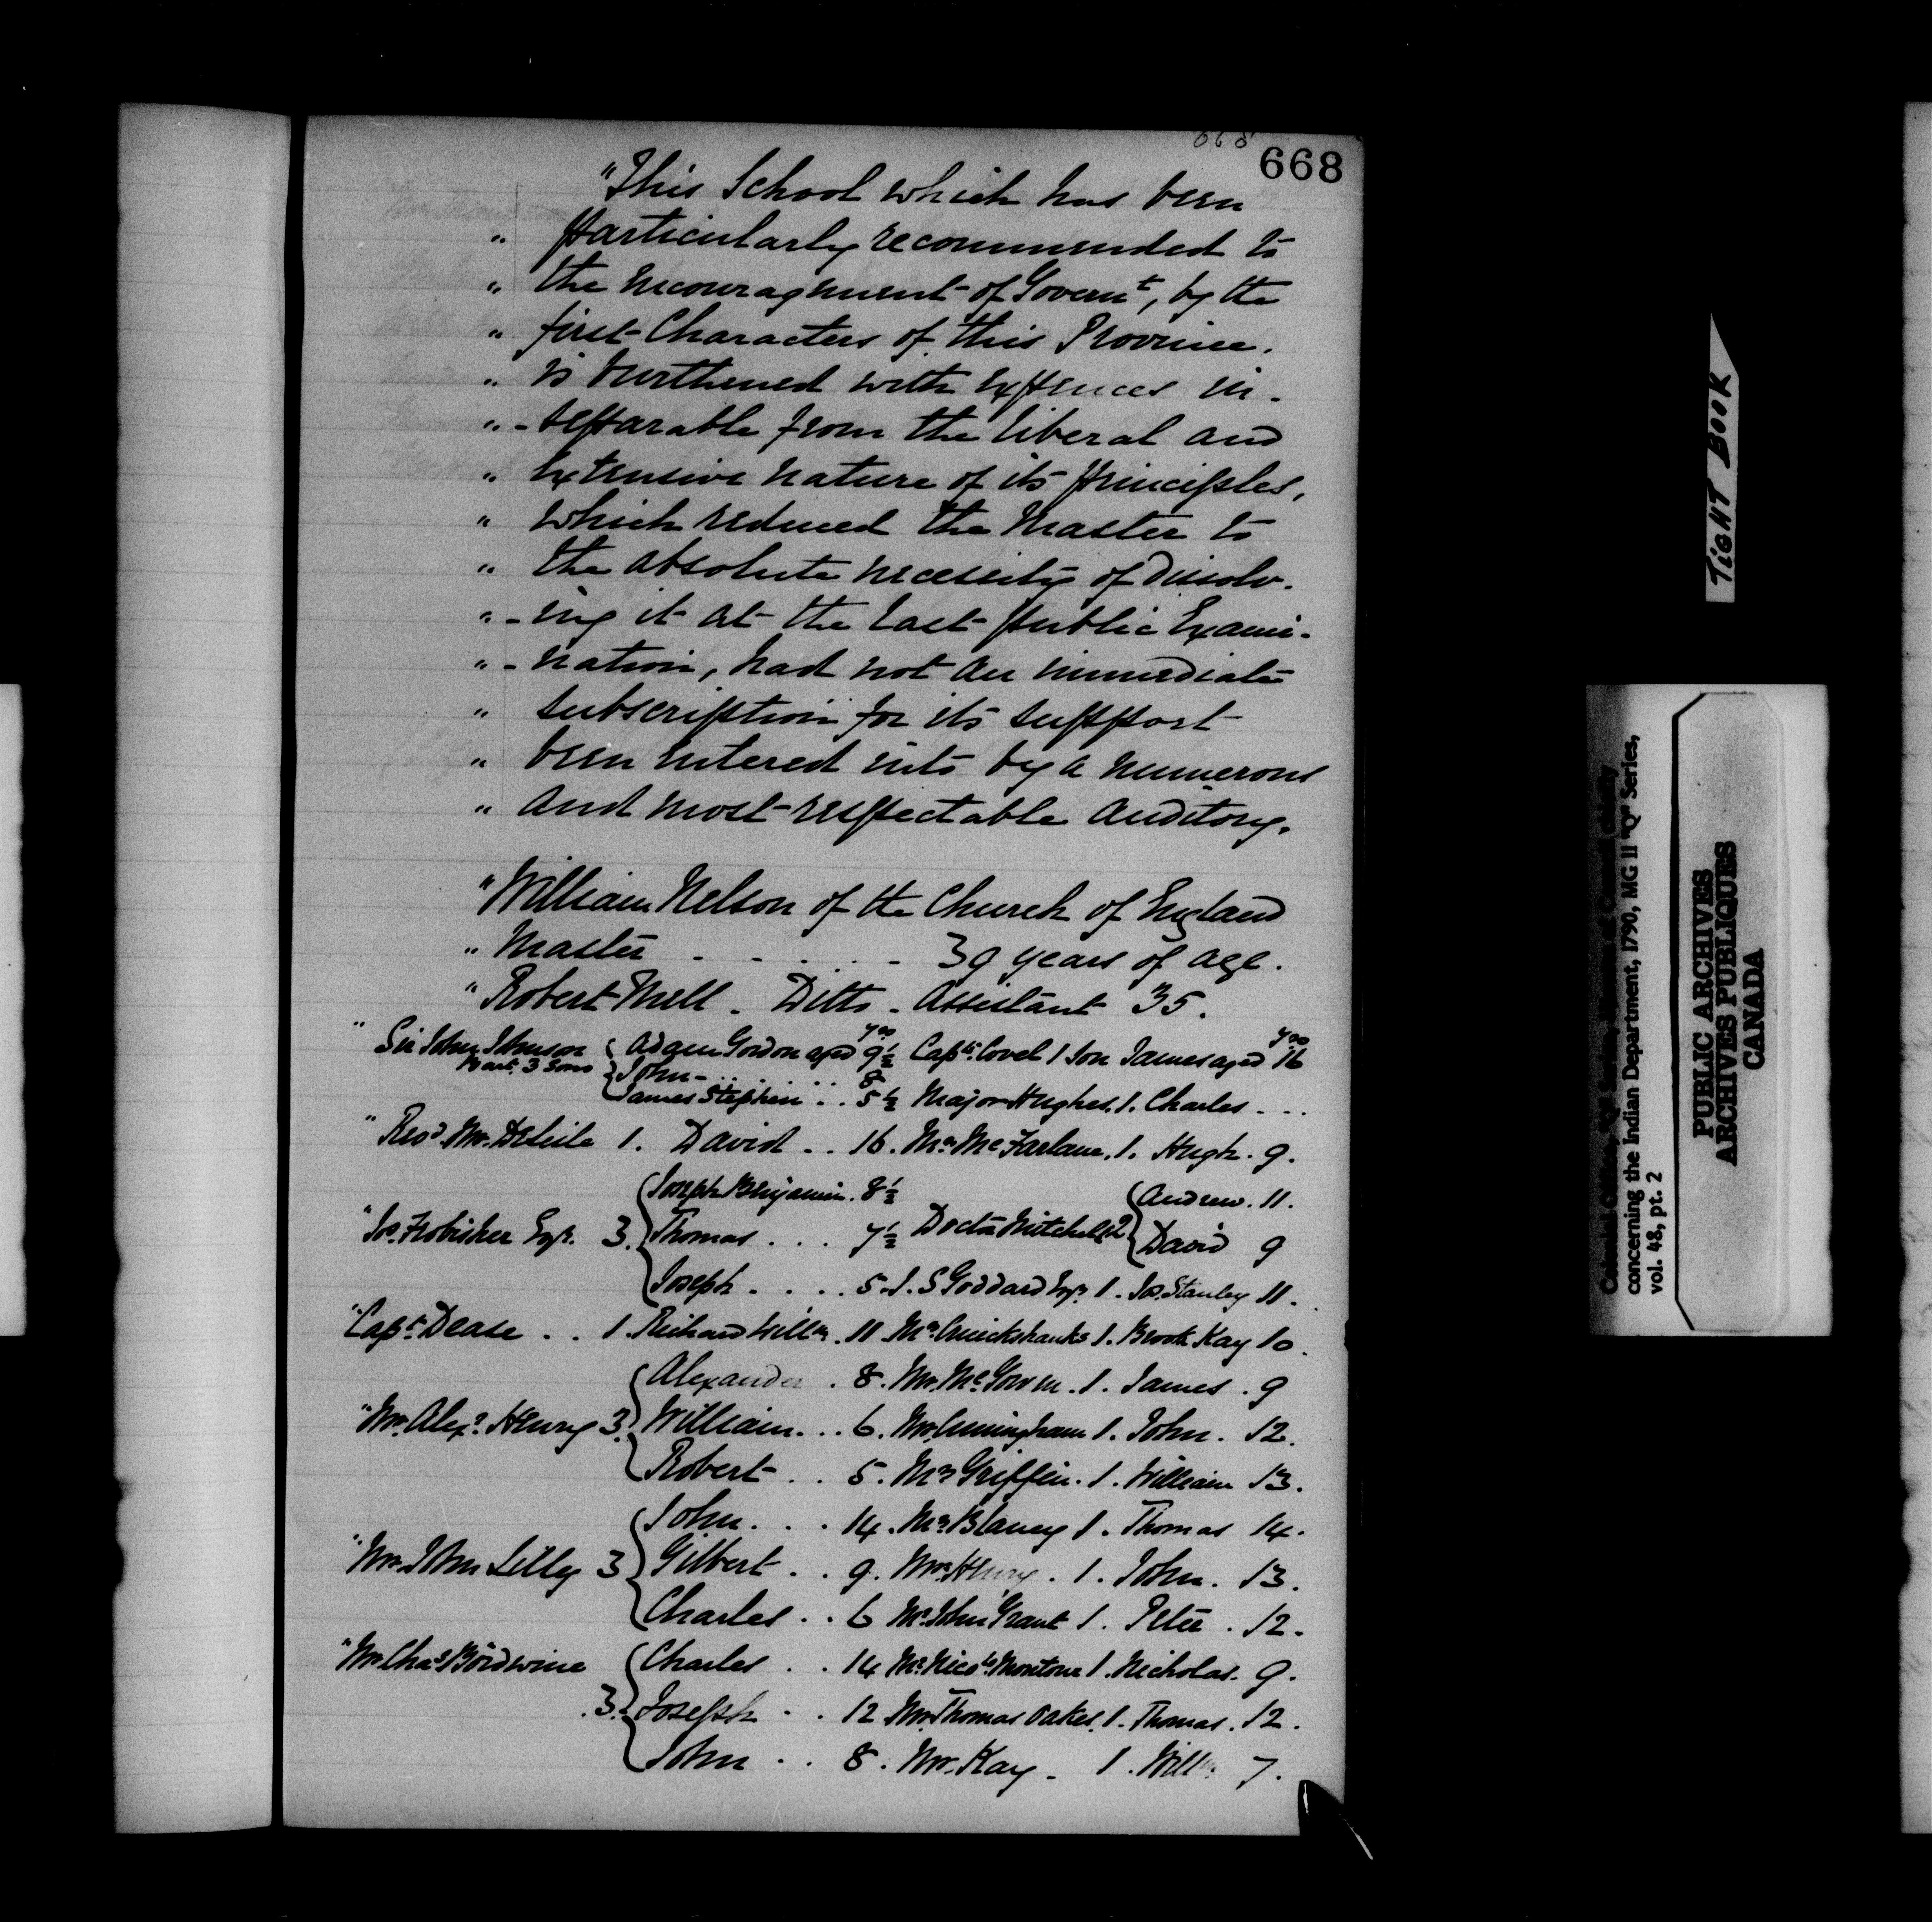 668
668
"This School which has been
" particularly recommended to
" the encouragment of Governt, by the
" first Characters of this Province.
" is burthened with expences in-
" -separable from the liberal and
" extensive nature of its principles,
" which reduced the Master to
" the absolute necessity of dissolv-
" -ing it at the last public Exami-
" -nation, had not an immediate
" subscription for its support
" been entered into by a numerous
" and most respectable auditory.
"William Nelson of the Church of England
" Master - - - - - 39 years of age.
"Robert Mell - Ditto - Assistant 35.
" Sir John Johnson Bart. 3 Sons { Adam Gordon aged 9½ yrs Captn. Covel 1 Son James aged 16 yrs
John - . . . . 8
James Stephen . . 5½ Major Hughes. 1. Charles - - -
" Revd. Mr. Delisle 1. David . . 16. Mr. McFarlane. 1. Hugh. 9.
{ Joseph Benjamin. 8½ { Andrew. 11.
"Js. Frobisher Esqr. 3. { Thomas . . . 7½ Doctr Mitchell 2 { David 9
{ Joseph . . . . 5. J. S Goddard Esqr. 1. Js. Stanley 11.
"Capt. Dease . . 1. Richard Willm. 11 Mr. Cruickshanks 1. Brook Kay 10.
{ Alexander . 8. Mr. McGowen. 1. James . 9
"Mr. Alexr. Henry 3. { William. . . 6. Mr. Cuningham 1. John. 12.
{ Robert . . 5. Mr. Griffin. 1. William 13.
{ John. . . 14. Mr. Blaney 1. Thomas 14.
"Mr. John Lilly 3 { Gilbert . . 9. Mrs. Henry. 1. John. 13.
{ Charles . . 6 Mr. John Grant 1. Peter . 12.
"Mr. Chas. Bordwine { Charles . . 14 Mr. Nichs. Montour 1. Nicholas. 9.
.3. { Joseph . . 12 Mr. Thomas Oakes. 1. Thomas. 12.
{ John . . 8. Mr. Kay - 1. Willm. 7.
TIGHT BOOK
concerning the Indian Department, 1790, MG 11 "Q" Series,
vol. 48, pt. 2
PUBLIC ARCHIVES
ARCHIVES PUBLIQUES
CANADA